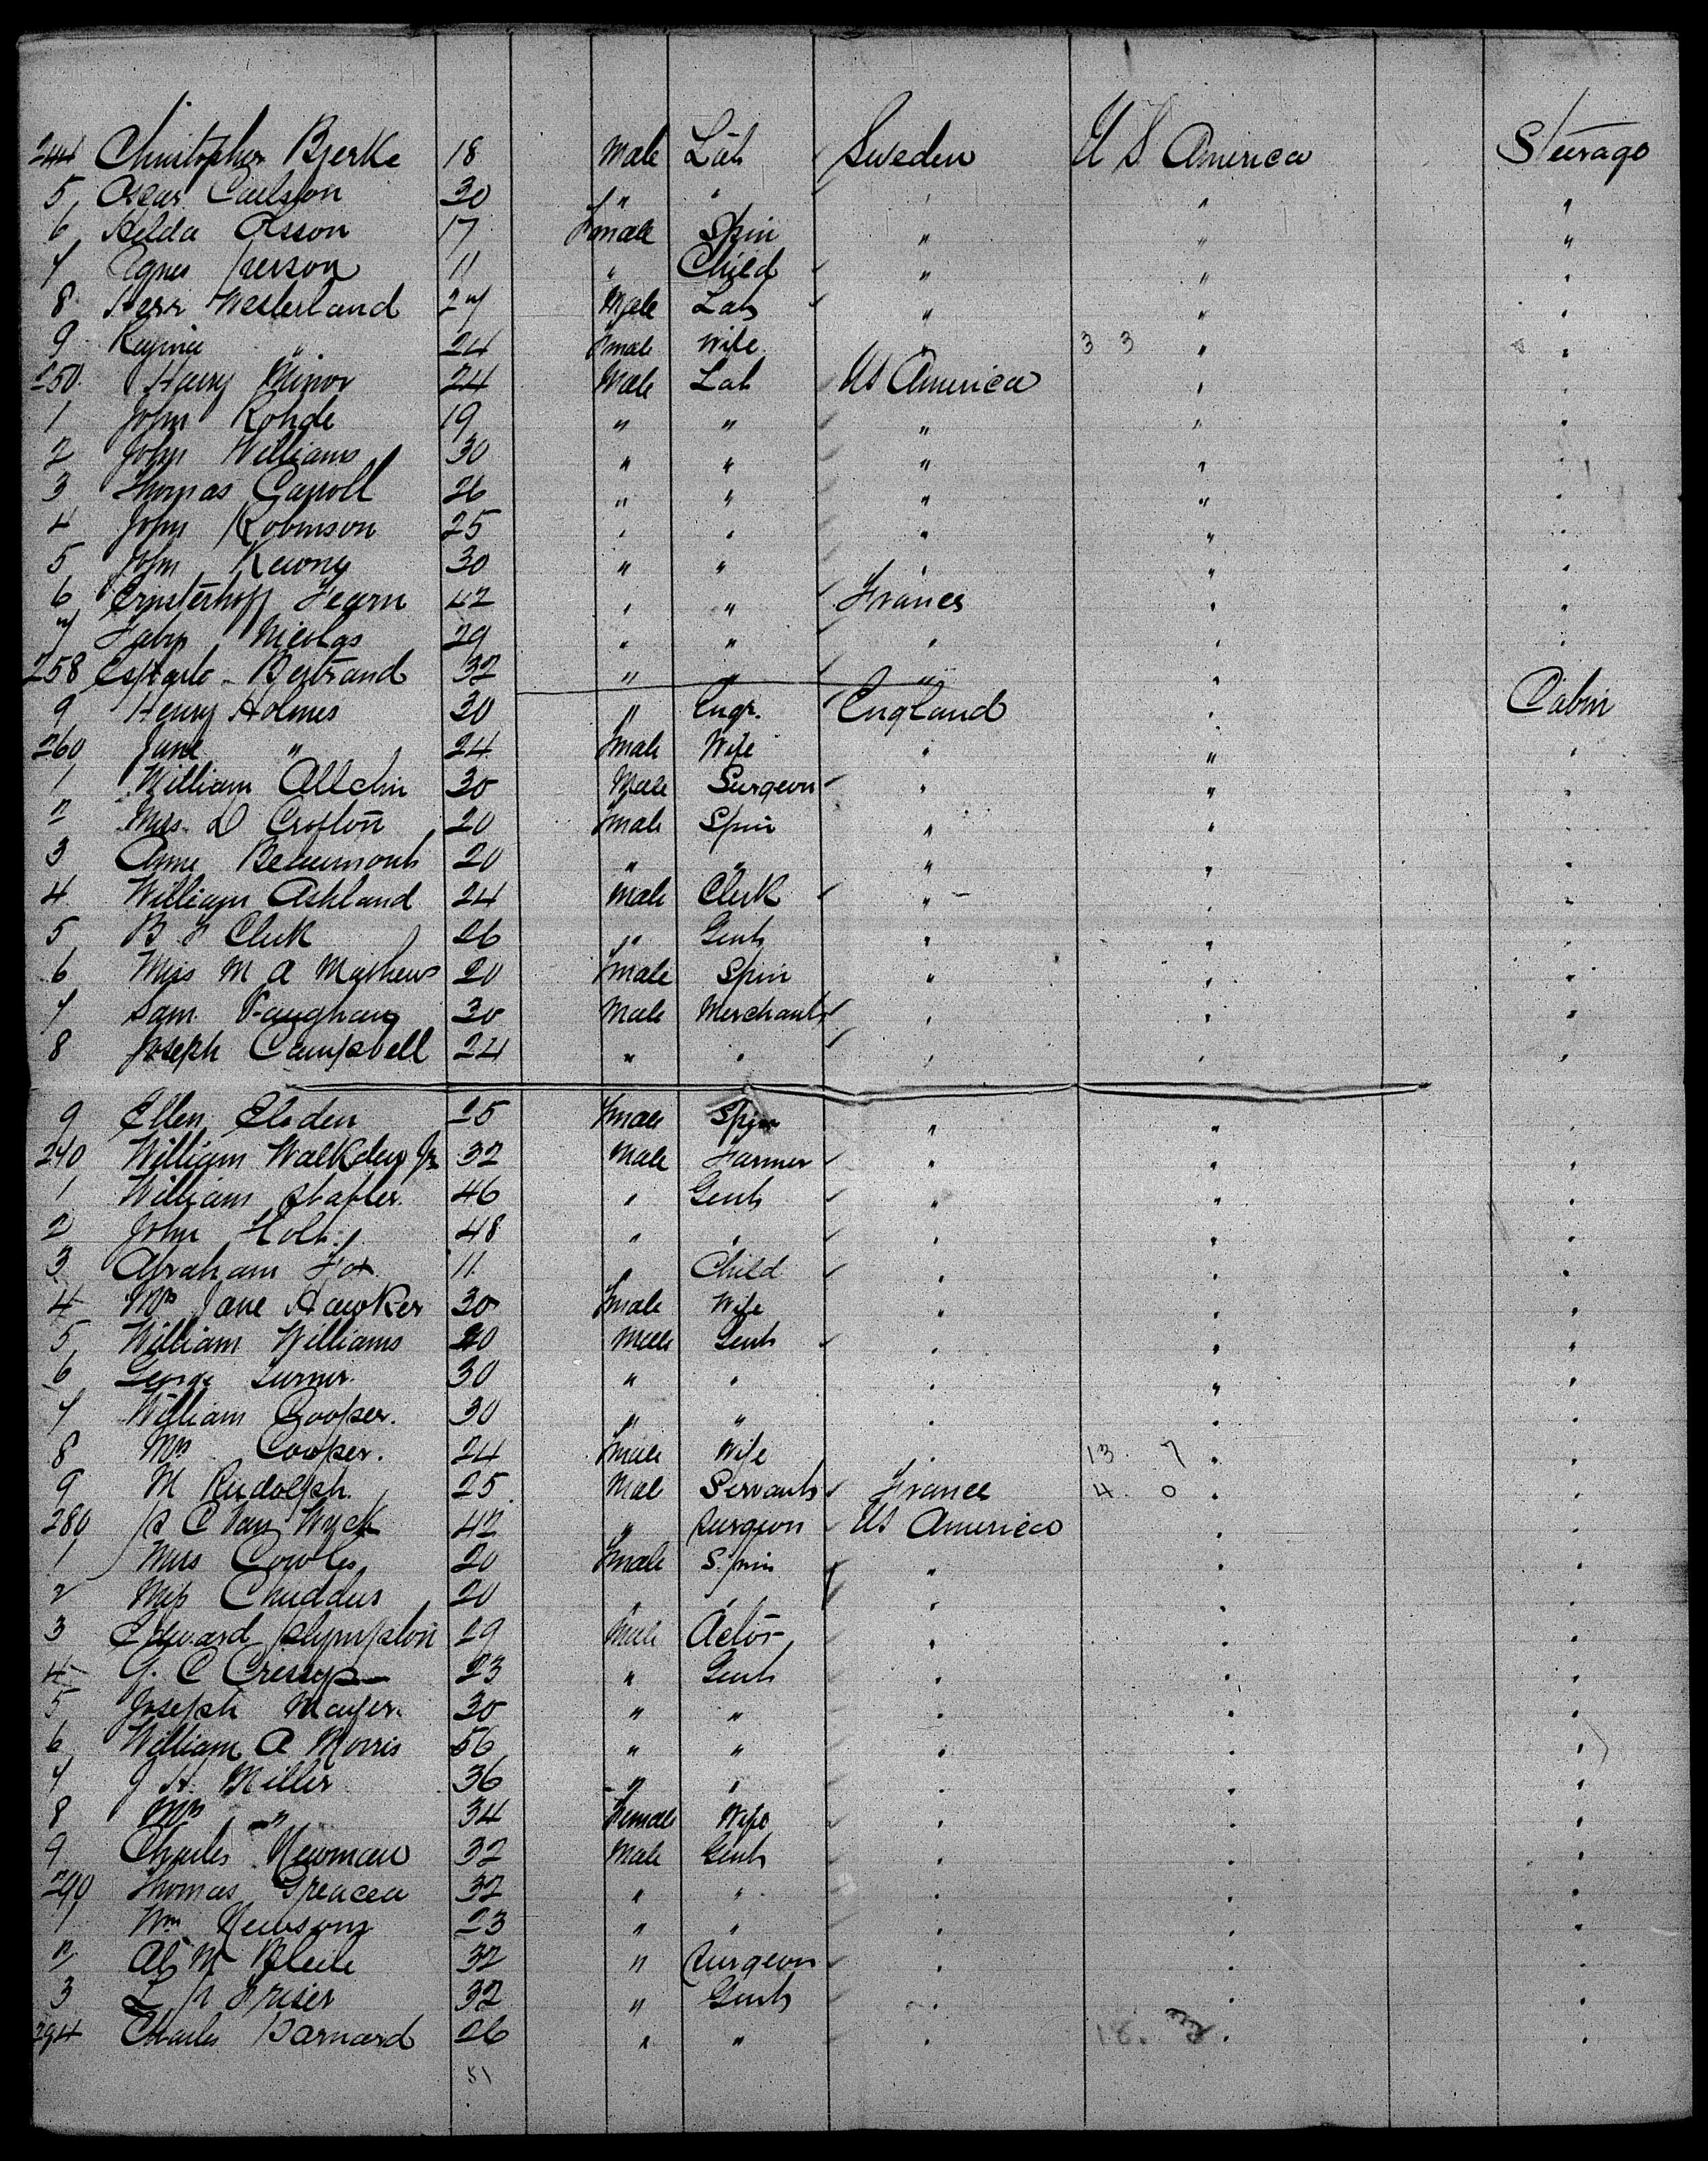 244 Christopher Bjerke 18 Male Lab Sweden U S America Steerage
5 Oscar Carlson 30 " " " " "
6 Hilda Olsson 17 Female Spin " " "
7 Agnes Person 11 " Child " " "
8 Westerland 27 Male Lab " " "
9 " 24 Fmale Wife " 3 3 " "
250 Harry Minor 24 Male Lab US America " "
1 John Rohde 19 " " " " "
2 John Williams 30 " " " " "
3 Thomas Carroll 26 " " " " "
4 John Robinson 25 " " " " "
5 John 30 " " " " "
6 42 " " France " "
7 Nicolas 29 " " " " "
258 Bertrand 32 " " " " "
9 Henry Holmes 30 " Engr. England " Cabin
260 Jane " 24 Fmale Wife " " "
1 William Allchin 30 Male Surgeon " " "
2 Miss D Crofton 20 Fmale Spin " " "
3 Anne Beaumont 20 " " " " "
4 William Ashland 24 Male Clerk " " "
5 B Clerk 26 " Gent " " "
6 Miss M A Mathews 20 Fmale Spin " " "
7 Sam Vaughan 30 Male Merchant " " "
8 Joseph Campbell 24 " " " " "
9 Ellen Elsden 25 Fmale Spin " " "
270 William Walkden Jr 32 Male Farmer " " "
1 William Stapler 46 " Gent " " "
2 John Holt 48 " " " " "
3 Abraham Fox 11 " Child " " "
4 Mrs Jane Hawker 30 Fmale Wife " " "
5 William Williams 20 Male Gent " " "
6 George Turner 30 " " " " "
7 William Cooper. 30 " " " " "
8 Mrs Cooper. 24 Fmale Wife " 13 7 " "
9 M Rudolph 25 Male Servant France 4 0 " "
280 C Van Wyck 42 " Surgeon US America " "
1 Miss Cowles 20 Fmale Spin " " "
2 Miss 20 " " " " "
3 Edward Plympton 29 Male Actor " " "
4 G. C Cressup 23 " Gent " " "
5 Joseph Mayer 30 " " " " "
6 William A Morris 56 " " " " "
7 J H Miller 36 " " " " "
8 Mrs " 34 Female Wife " " "
9 Charles Newman 32 Male Gent " " "
290 Thomas Greacen 32 " " " " "
1 Wm Newsom 23 " " " " "
2 M Bleile 32 " Surgeon " " "
3 L 32 " Gent " " "
294 Charles Barnard 26 " " " "
51